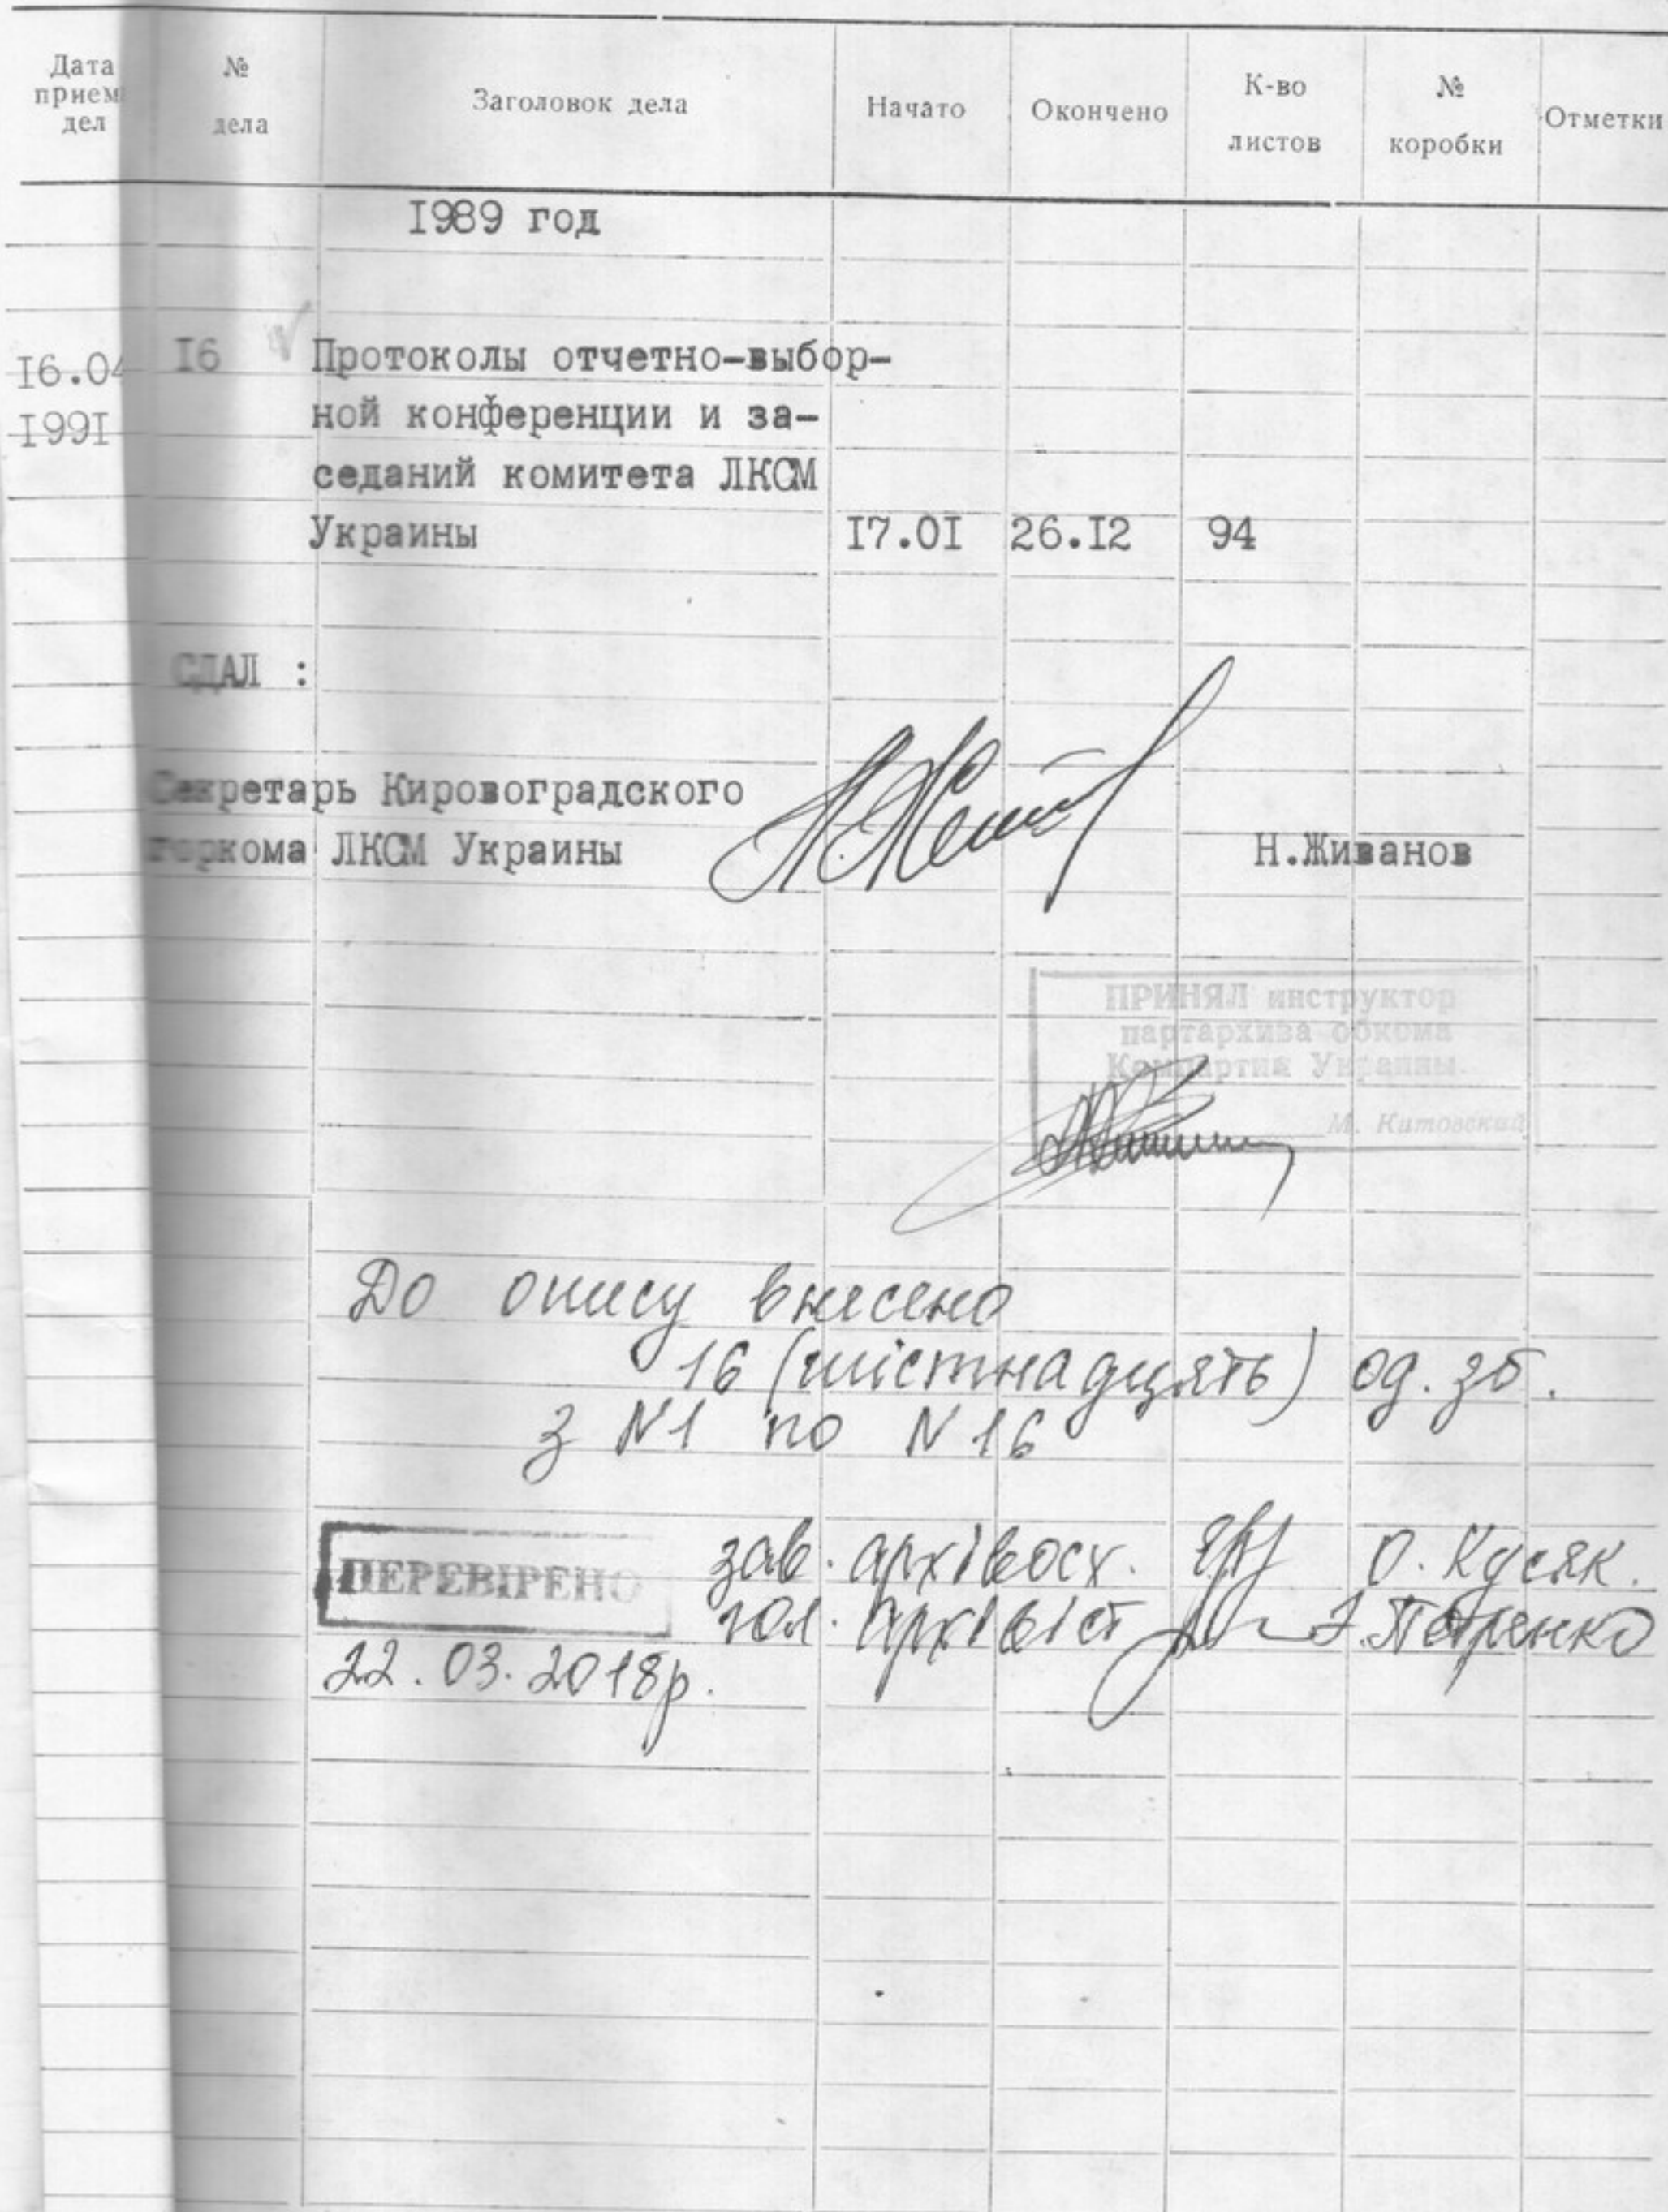 Дата
прием
дел
№
дела
Заголовок дела
Начато
Окончено
К-во
листов
№
коробки
Отметки
I989 год
I6.04
I99I
I6
Протоколы отчетно-выбор-
ной конференции и за-
седаний комитета ЛКСМ
Украины I7.0I 26.I2 94
СДАЛ :
Секретарь Кировоградского
горкома ЛКСМ Украины Н.Живанов
ПРИНЯЛ инструктор
партархива обкома
Компартии Украины
М. Китовский
До опису внесено
16 (шістнадцять) од. зб.
з N1 по N 16
ПЕРЕВІРЕНО
зав. архівосх. О. Кусяк.
гол. архівіст Петренко
22.03.2018р.